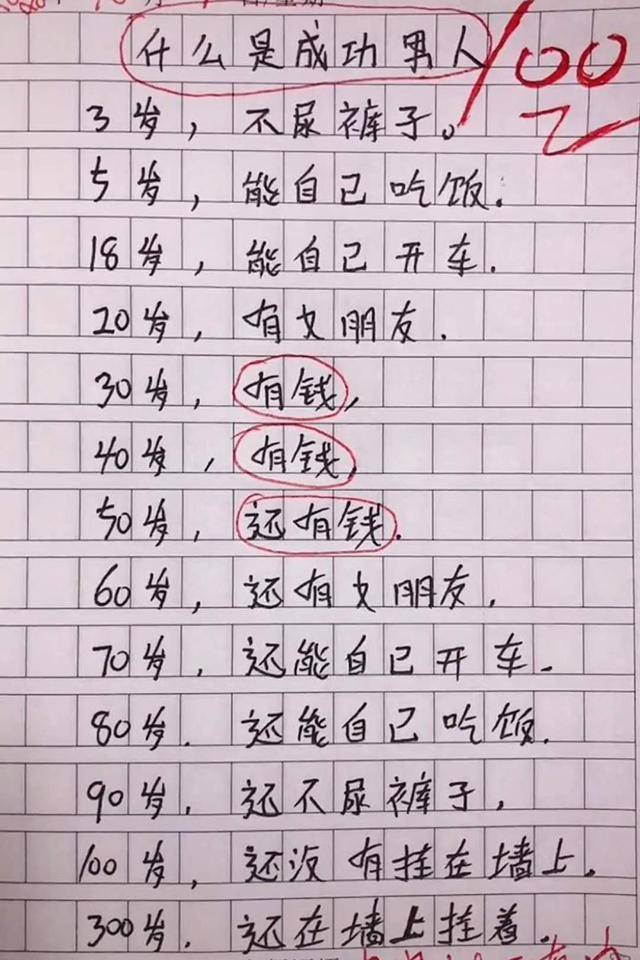 什么是成功男人
100
3岁，不尿裤子。
5岁，能自己吃饭.
18岁，能自己开车.
20岁，有女朋友.
30岁，有钱，
40岁，有钱，
50岁，还有钱.
60岁，还有女朋友，
70岁，还能自己开车.
80岁.还能自己吃饭.
90岁，还不尿裤子，
100岁，还没有挂在墙上.
300岁.还在墙上挂着.